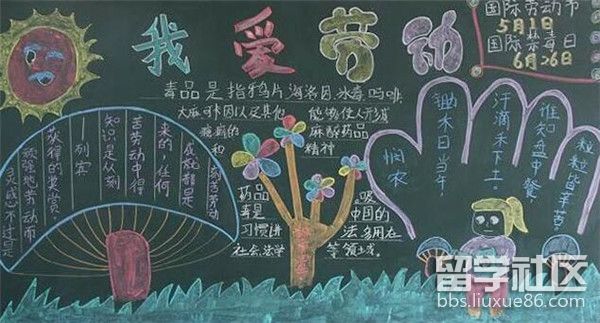 我爱劳动
国际劳动节
5月1日
国际禁毒日
6月26日
毒品是指鸦片 海洛因 冰毒 吗啡
大麻 可卡因以及其他 能够使人形成
瘾癖的 麻醉药品
和 精神
药品
毒是 中国的
习惯进 法 多用在
社会 法学 等领域
灵感不过是
顽强地劳动而
获得的奖赏
列宾
知识是从刻
苦劳动中得
来的,任何
成就都是
刻苦劳动
悯农
锄禾日当午
汗滴禾下土。
谁知盘中餐
粒粒皆辛苦。
留学社区
bbs.liuxue86.com